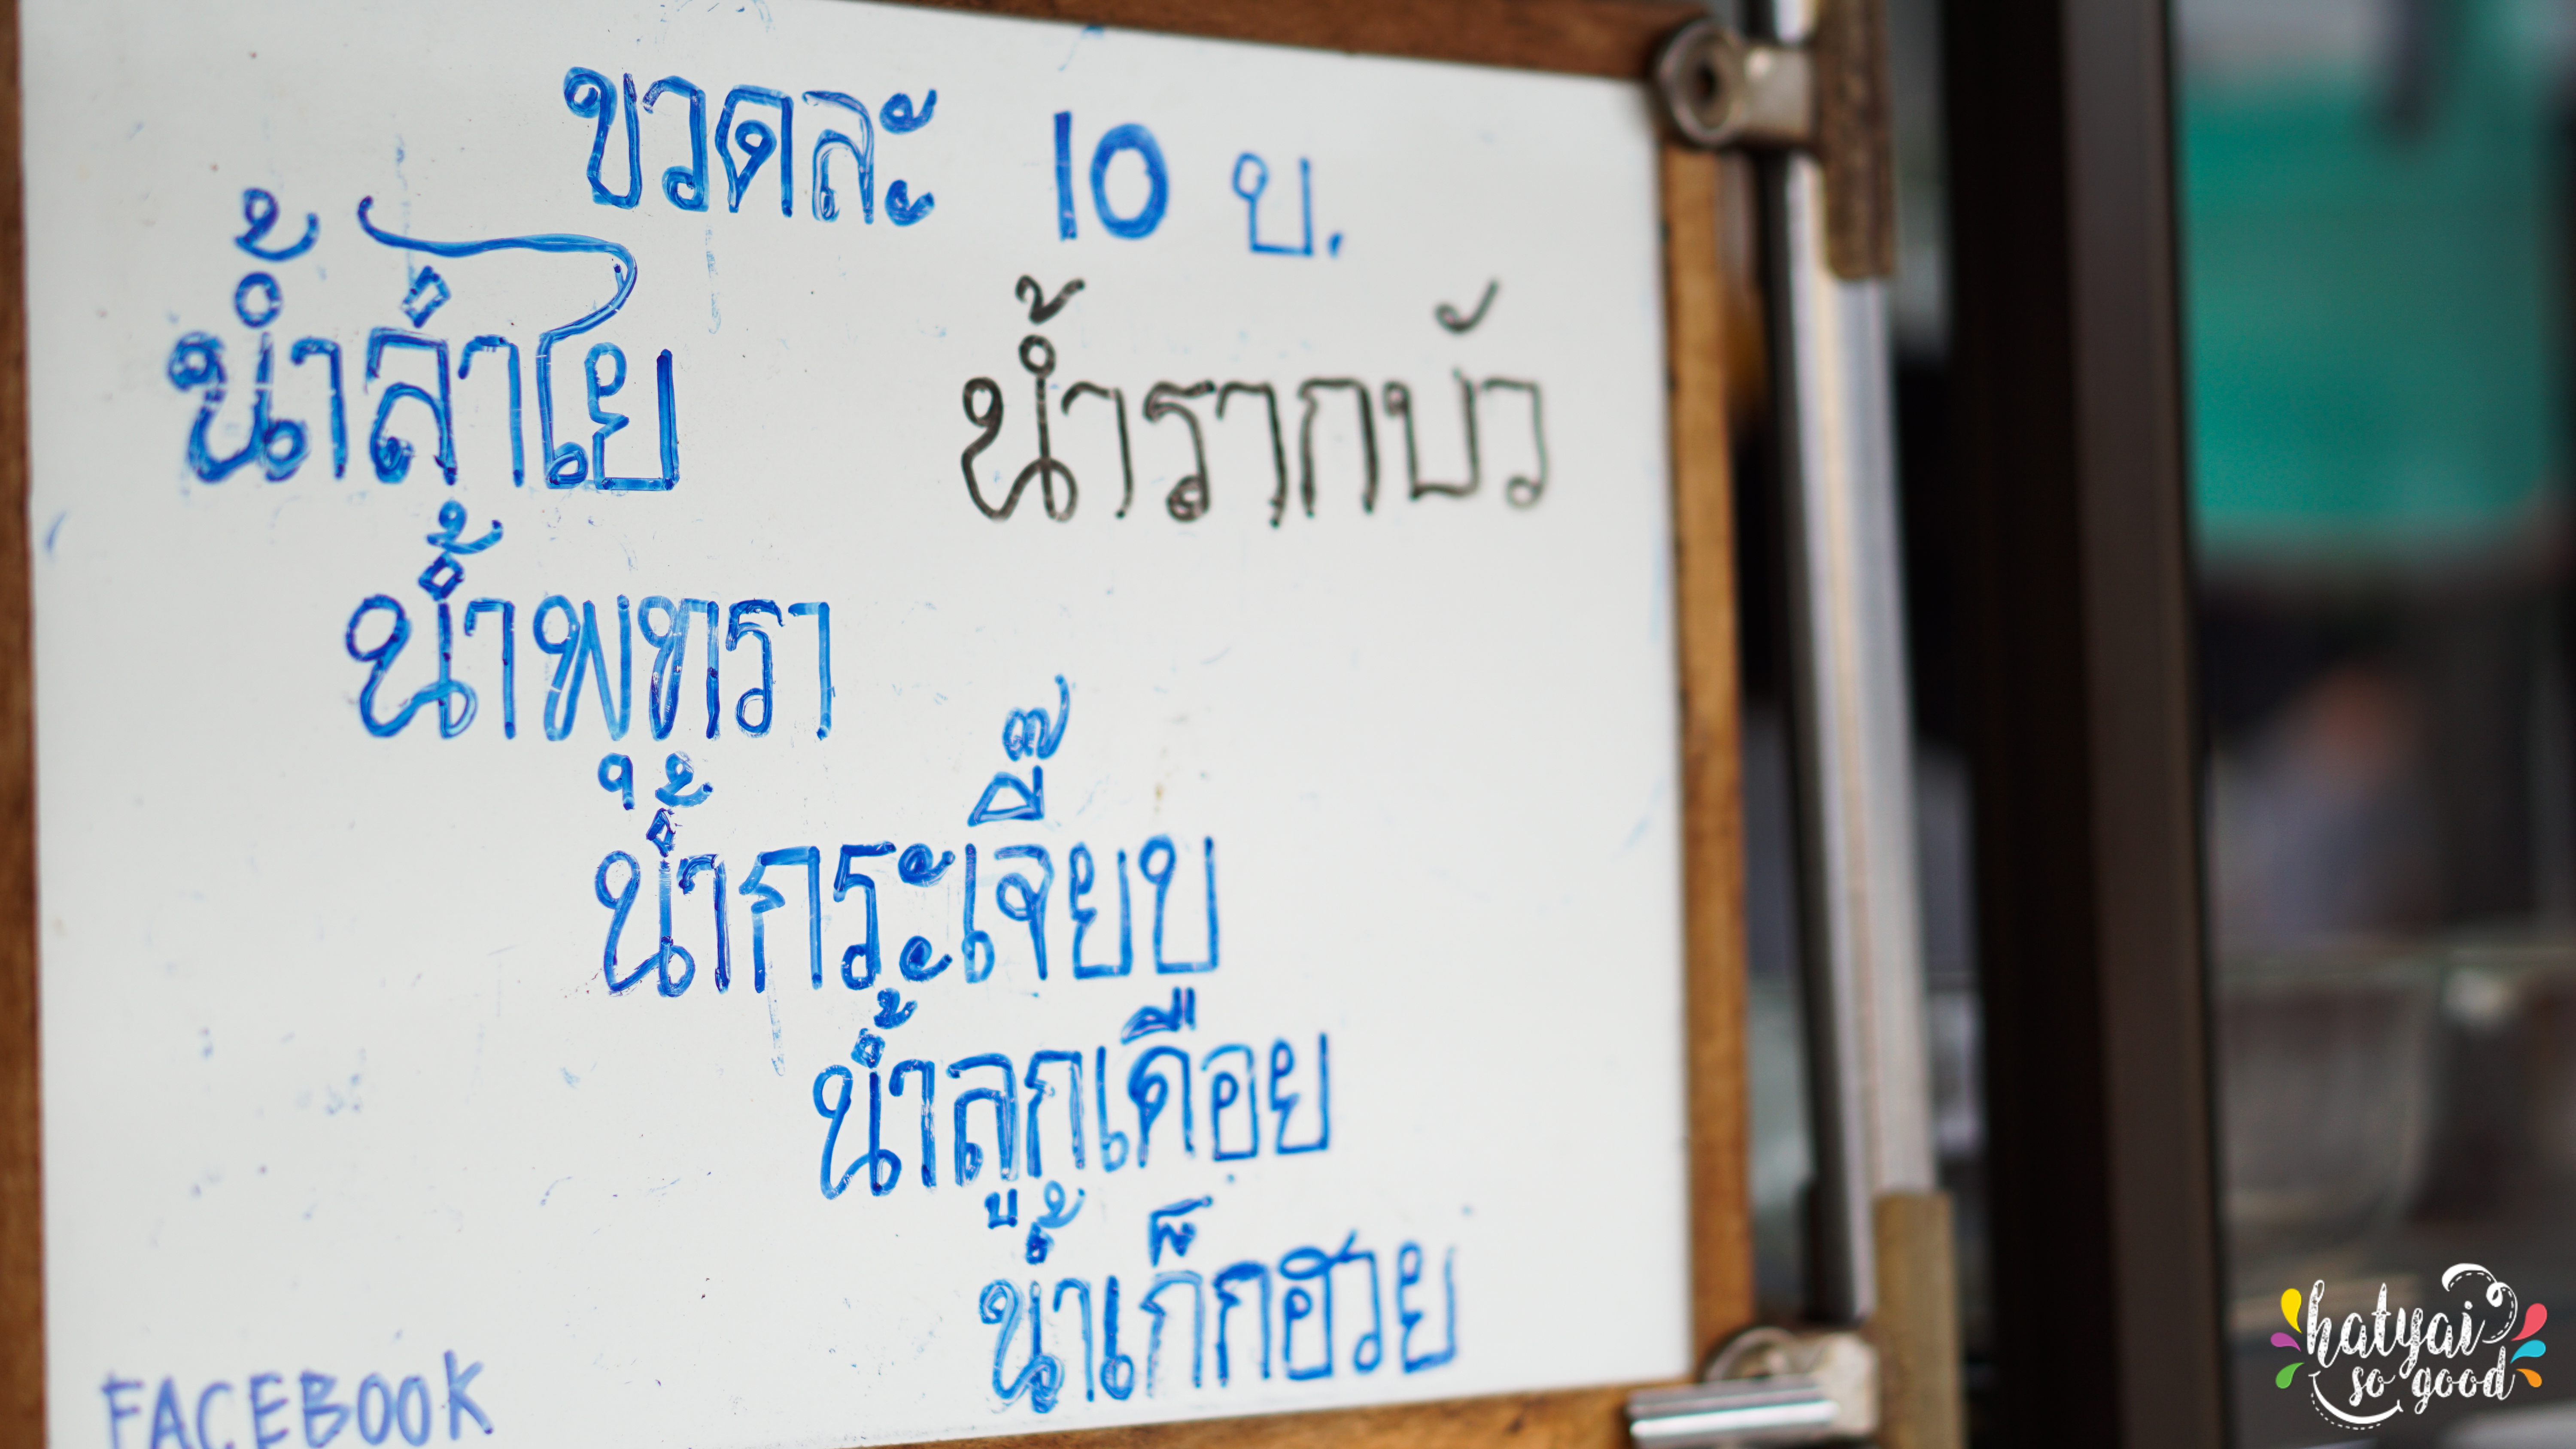 ขวดละ 10 บ.
น้ำลำไย
น้ำรากบัว
น้ำพุทรา
น้ำกระเจี๊ยบ
น้ำลูกเดือย
น้ำเก็กฮวย
FACEBOOK
hatyai
so good